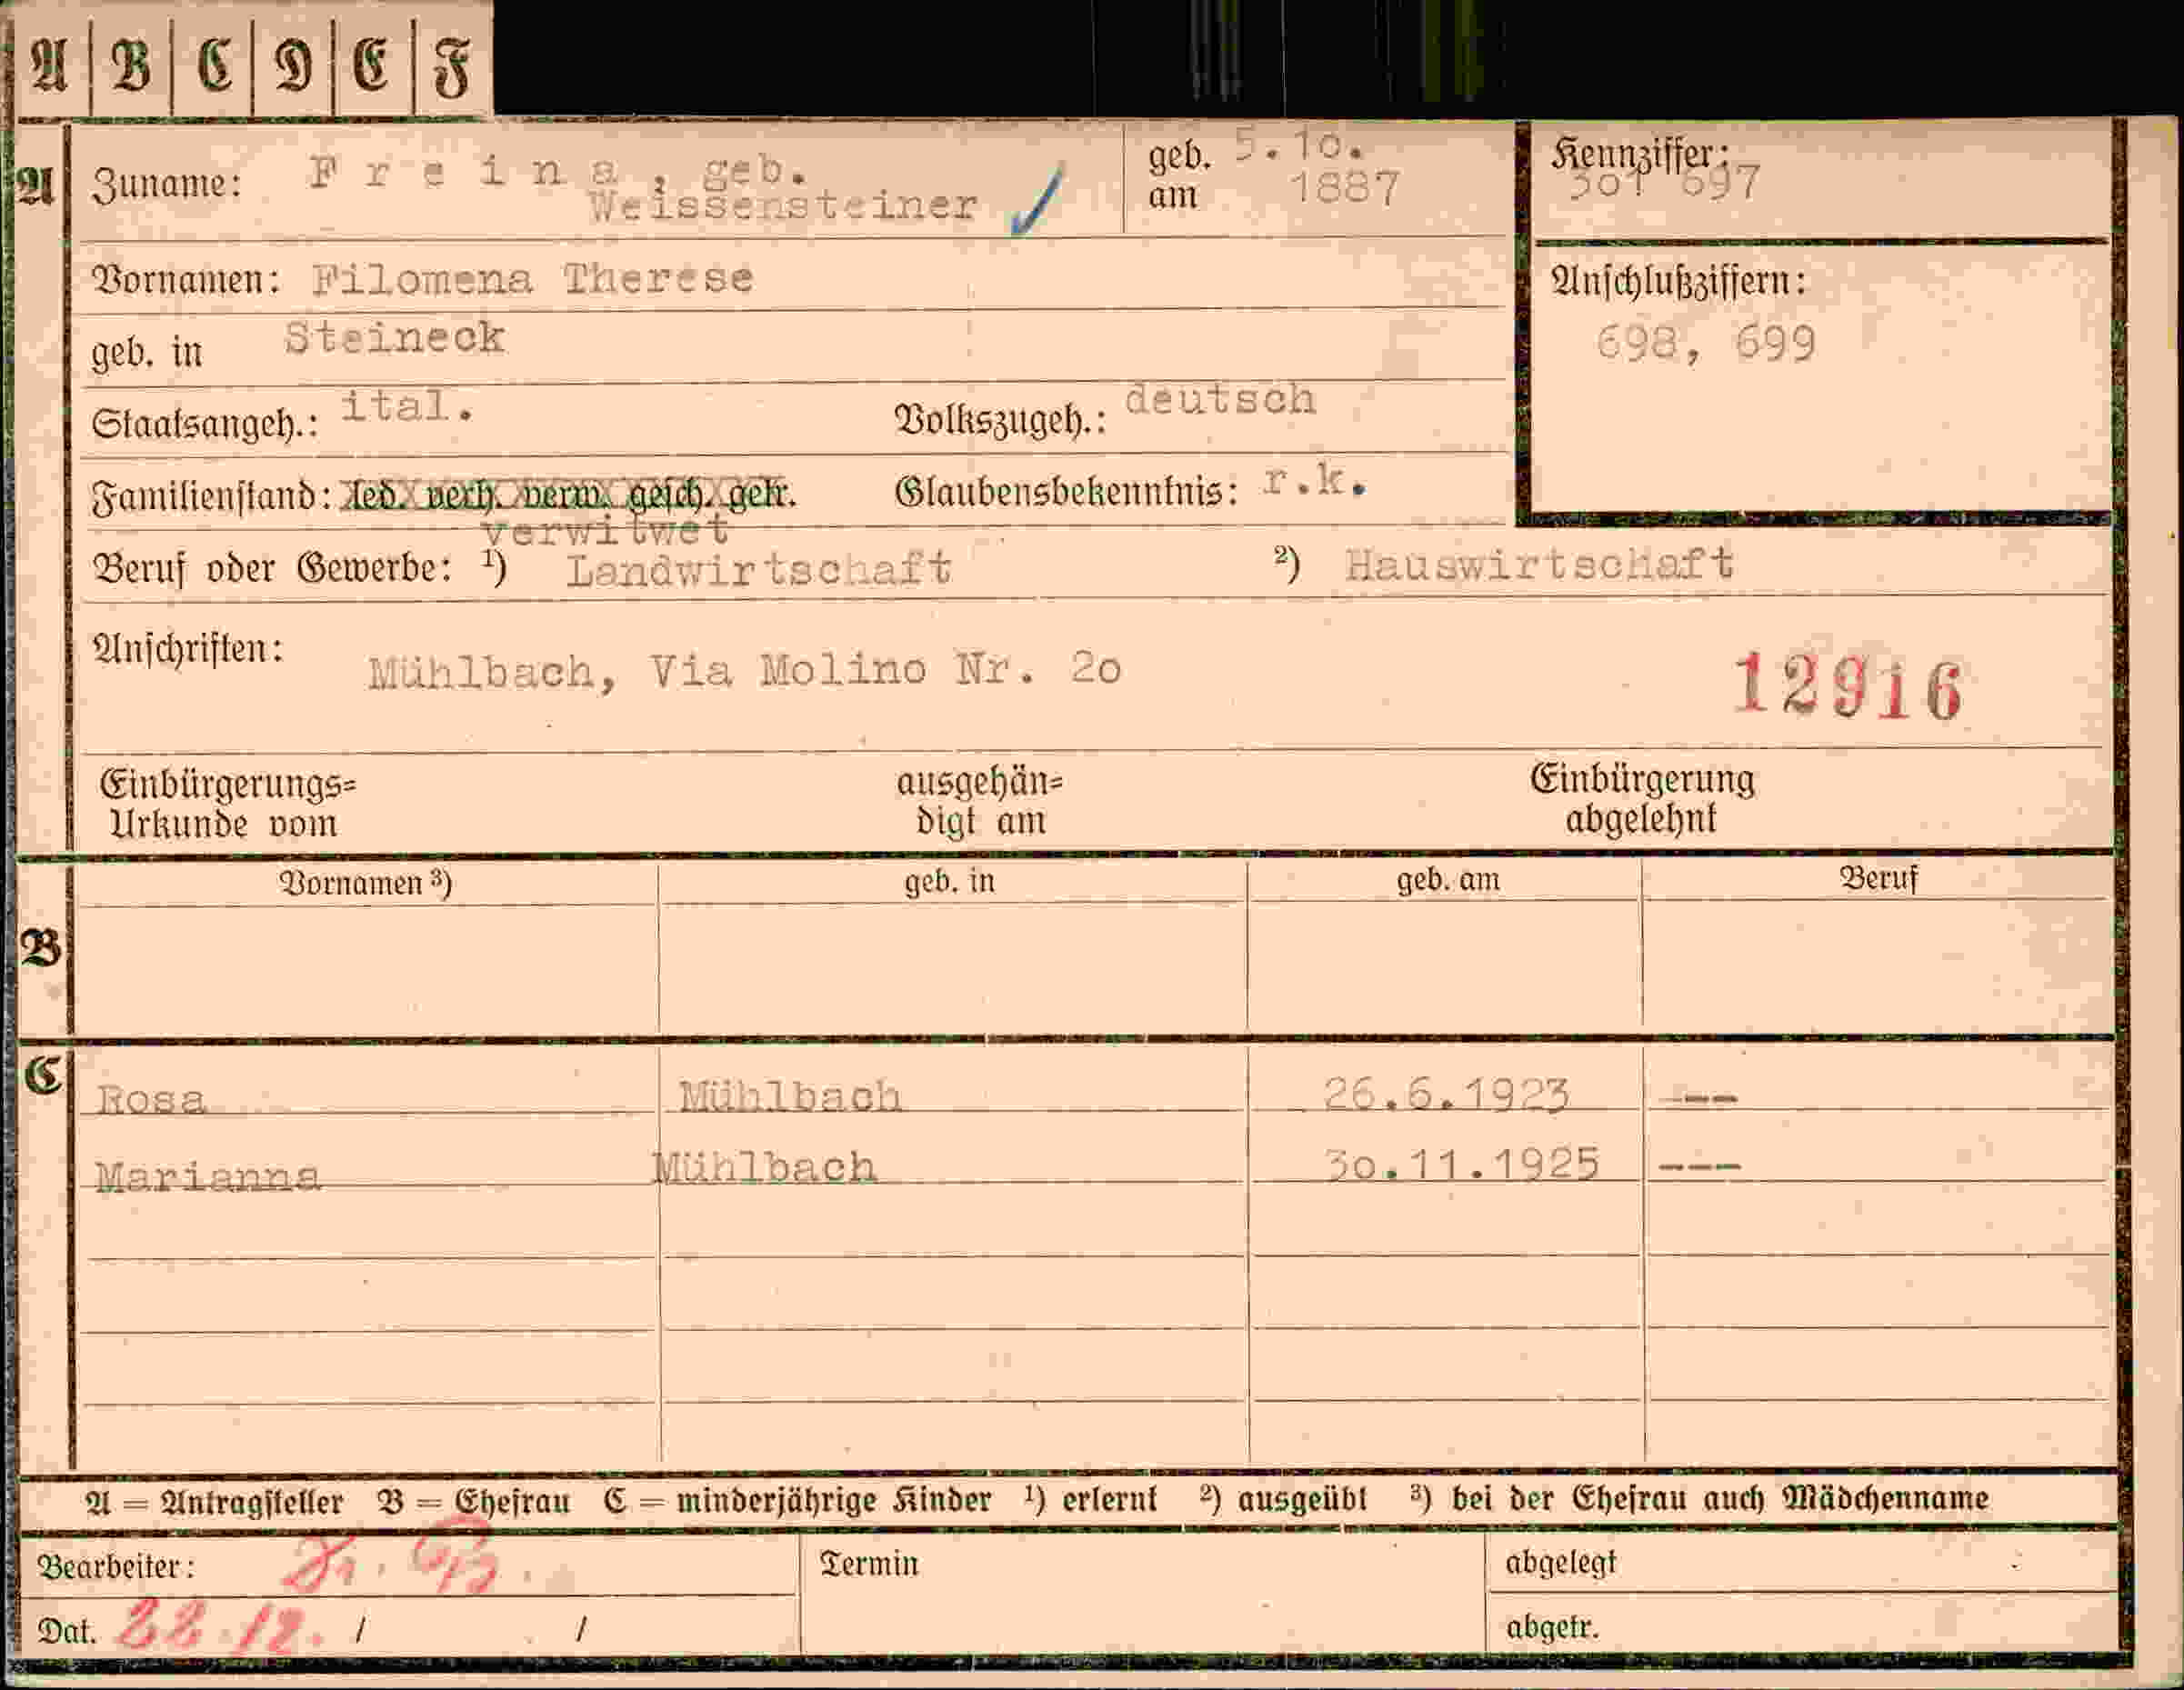 A B C D E F
A Zuname: F r e i n a , geb. Weissensteiner geb. am 5.10. 1887 Kennziffer: 301 697
Vornamen: Filomena Therese Anschlußziffern:
geb. in Steineck 698, 699
Staatsangeh.: ital. Volkszugeh.: deutsch
Familienstand: led. verh. verw. gesch. getr. Glaubensbekenntnis: r.k.
verwitwet
Beruf oder Gewerbe: ¹) Landwirtschaft ²) Hauswirtschaft
Anschriften: Mühlbach, Via Molino Nr. 2o 12916
Einbürgerungs= ausgehän= Einbürgerung
Urkunde vom digt am abgelehnt
Vornamen ³) geb. in geb. am Beruf
B
C
Rosa Mühlbach 26.6.1923 ---
Marianna Mühlbach 3o.11.1925 ---
A = Antragsteller B = Ehefrau C = minderjährige Kinder ¹) erlernt ²) ausgeübt ³) bei der Ehefrau auch Mädchenname
Bearbeiter: Termin abgelegt
Dat. 22.12. / / abgetr.